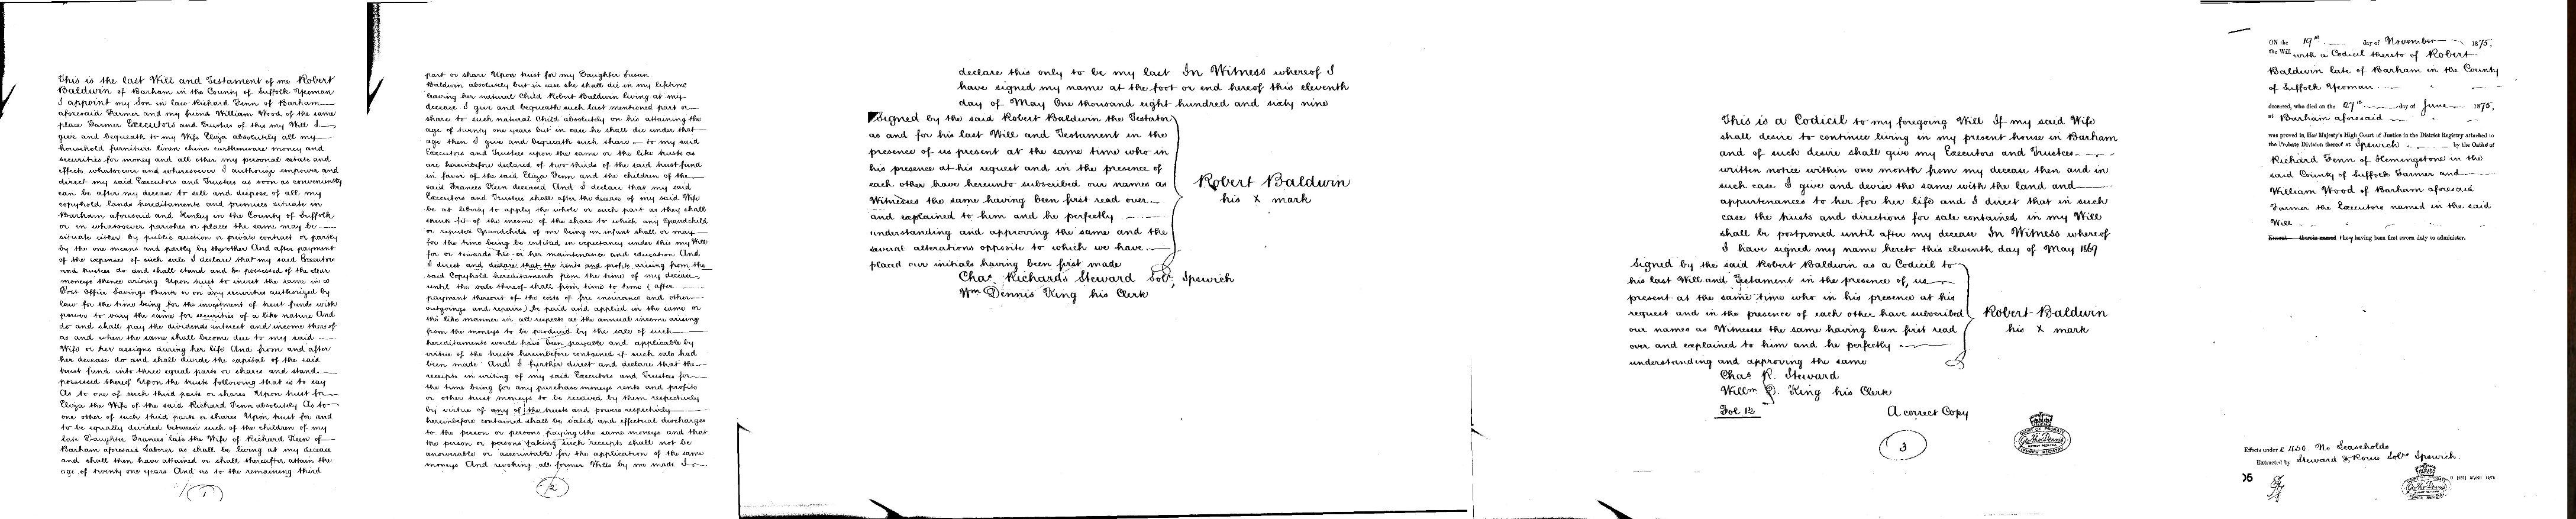 This is the last Will and Testament of me Robert
Baldwin of Barham in the County of Suffolk Yeoman
I appoint my Son in law Richard Fenn of Barham
aforesaid Farmer and my friend William Wood of the same
place Farmer Executors and Trustees of this my Will I
give and bequeath to my Wife Eliza absolutely all my
household furniture linen china earthenware money and
securities for money and all other my personal estate and
effects whatsoever and wheresoever I authorize empower and
direct my said Executors and Trustees as soon as conveniently
can be after my decease to sell and dispose of all my
copyhold lands hereditaments and premises situate in
Barham aforesaid and Henley in the County of Suffolk
or in whatsoever parishes or places the same may be
situate either by public auction or private contract or partly
by the one means and partly by the other And after payment
of the expenses of such sale I declare that my said Executors
and trustees do and shall stand and be possessed of the clear
moneys thence arising Upon trust to invest the same in a
Post Office Savings Bank or on any securities authorized by
law for the time being for the investment of trust funds with
power to vary the same for securities of a like nature And
do and shall pay the dividends interest and income thereof
as and when the same shall become due to my said
Wife or her assigns during her life And from and after
her decease do and shall divide the capital of the said
trust fund into three equal parts or shares and stand
possessed thereof Upon the trusts following that is to say
As to one of such third parts or shares Upon trust for
Eliza the Wife of the said Richard Fenn absolutely As to
one other of such third parts or shares Upon trust for and
to be equally divided between such of the children of my
late Daughter Frances late the Wife of Richard Keen of
Barham aforesaid Laborer as shall be living at my decease
and shall then have attained or shall thereafter attain the
age of twenty one years And as to the remaining third
1
part or share Upon trust for my Daughter Susan
Baldwin absolutely but in case she shall die in my lifetime
leaving her natural Child Robert Baldwin living at my
decease I give and bequeath such last mentioned part or
share to such natural Child absolutely on his attaining the
age of twenty one years but in case he shall die under that
age then I give and bequeath such share to my said
Executors and Trustees upon the same or the like trusts as
are hereinbefore declared of two thirds of the said trust fund
in favor of the said Eliza Fenn and the children of the
said Frances Keen deceased And I declare that my said
Executors and Trustees shall after the decease of my said Wife
be at liberty to apply the whole or such part as they shall
think fit of the income of the share to which any Grandchild
or reputed Grandchild of me being an infant shall or may
for the time being be entitled in expectancy under this my Will
for or towards his or her maintenance and education And
I direct and declare that the rents and profits arising from the
said Copyhold hereditaments from the time of my decease
until the sale thereof shall from time to time (after
payment thereout of the costs of fire insurance and other
outgoings and repairs) be paid and applied in the same or
the like manner in all respects as the annual income arising
from the moneys to be produced by the sale of such
hereditaments would have been payable and applicable by
virtue of the trusts hereinbefore contained if such sale had
been made And I further direct and declare that the
receipts in writing of my said Executors and Trustees for
the time being for any purchase moneys rents and profits
or other trust moneys to be received by them respectively
by virtue of any of the trusts and powers respectively
hereinbefore contained shall be valid and effectual discharges
to the person or persons paying the same moneys and that
the person or persons taking such receipts shall not be
answerable or accountable for the application of the same
moneys And revoking all former Wills by me made I
2
declare this only to be my last In Witness whereof I
have signed my name at the foot or end hereof this eleventh
day of May One thousand eight hundred and sixty nine
Signed by the said Robert Baldwin the Testator
as and for his last Will and Testament in the
presence of us present at the same time who in
his presence at his request and in the presence of
each other have hereunto subscribed our names as
Witnesses the same having been first read over
and explained to him and he perfectly
understanding and approving the same and the
several alterations opposite to which we have
placed our initials having been first made
Robert Baldwin
his X mark
Chas. Richards Steward Solr. Ipswich
Wm Dennis King his Clerk
This is a Codicil to my foregoing Will If my said Wife
shall desire to continue living in my present house in Barham
and of such desire shall give my Executors and Trustees
written notice within one month from my decease then and in
such case I give and devise the same with the land and
appurtenances to her for her life and I direct that in such
case the trusts and directions for sale contained in my Will
shall be postponed until after my decease In Witness whereof
I have signed my name hereto this eleventh day of May 1869
Signed by the said Robert Baldwin as a Codicil to
his last Will and Testament in the presence of us
present at the same time who in his presence at his
request and in the presence of each other have subscribed
our names as Witnesses the same having been first read
over and explained to him and he perfectly
understanding and approving the same
Robert Baldwin
his X mark
Chas. R. Steward
Willm D. King his Clerk
Fol 12
A correct Copy
3
COURT OF PROBATE
IPSWICH REGISTRY
ON the 19th day of November 1875,
the Will with a Codicil thereto of Robert
Baldwin late of Barham in the County
of Suffolk Yeoman
deceased, who died on the 27th day of June 1875,
at Barham aforesaid
was proved in Her Majesty's High Court of Justice in the District Registry attached to
the Probate Division thereof at Ipswich by the Oaths of
Richard Fenn of Hemingstone in the
said County of Suffolk Farmer and
William Wood of Barham aforesaid
Farmer the Executors named in the said
Will
therein named they having been first sworn duly to administer.
Effects under £ 450 No Leaseholds
Extracted by Steward & Rouse Solrs Ipswich